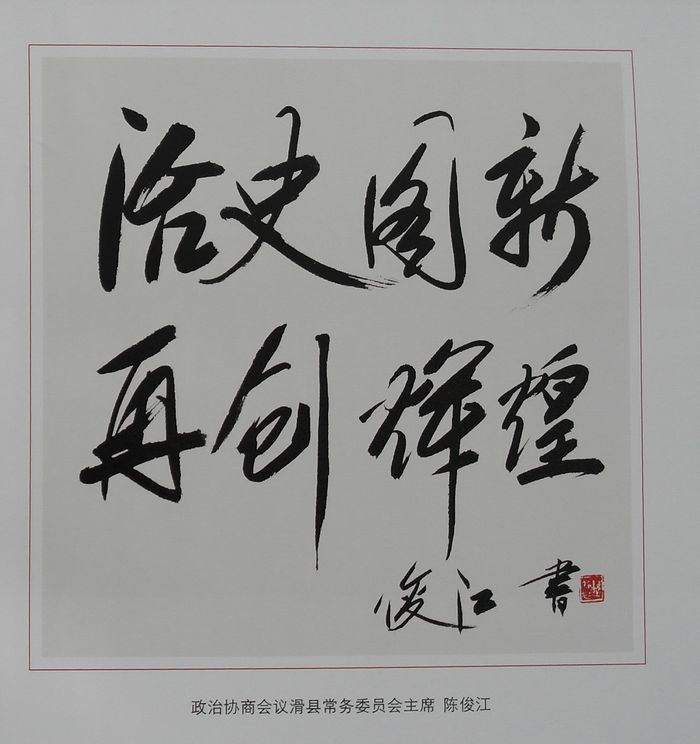 治史图新
再创辉煌
俊江 書
政治协商会议滑县常务委员会主席 陈俊江